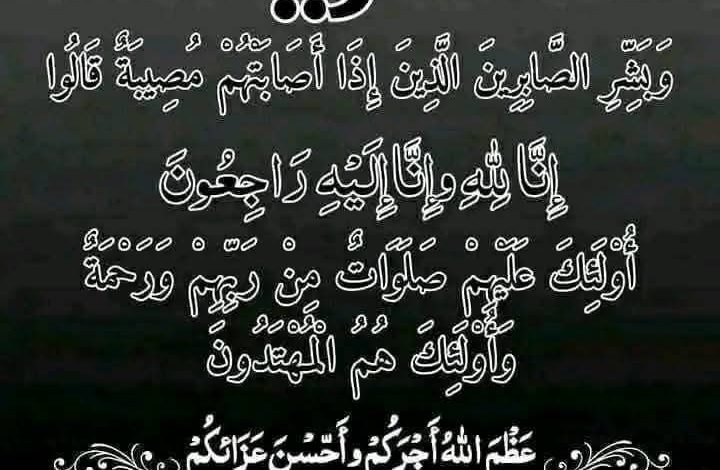 وَبَشِّرِ الصَّابِرِينَ الَّذِينَ إِذَا أَصَابَتْهُمْ مُصِيبَةٌ قَالُوا
إِنَّا لِلَّهِ وإِنَّا إِلَيْهِ رَاجِعُونَ
أُوْلَئِكَ عَلَيْهِمْ صَلَوَاتٌ مِنْ رَبِّهِمْ وَرَحْمَةٌ
وَأُوْلَئِكَ هُمُ الْمُهْتَدُونَ
عَظَّمَ اللهُ أَجْرَكُمْ وأَحْسَنَ عَزَائكُمْ